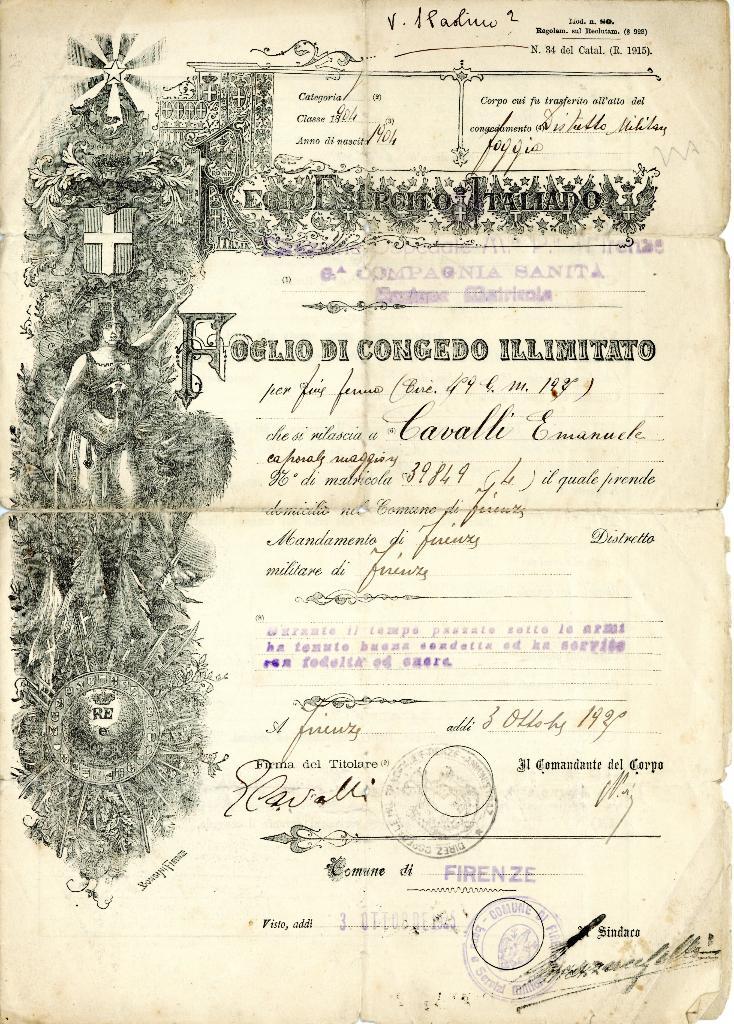 V. S Paolino 2
Mod. n. 80.
Regolam. sul Reclutam. (§ 923)
N. 34 del Catal. (R. 1915).
Categoria 1 (2)
Classe 1904 (3)
Anno di nascita 1904
Corpo cui fu trasferito all'atto del
congedamento (4) Distretto Militare
Foggia
REGIO ESERCITO ITALIANO
Firenze
6ª COMPAGNIA SANITÀ
Matricola
(1)
FOGLIO DI CONGEDO ILLIMITATO
per fine ferma (Circ. 49 G. M. 192 )
che si rilascia a Cavalli Emanuele
caporale maggiore
N° di matricola 39849 (4) il quale prende
domicilio nel Comune di Firenze
Mandamento di Firenze Distretto
militare di Firenze
(8)
Durante il tempo passato sotto le armi
ha tenuto buona condotta ed ha servito
con fedeltà ed onore.
A Firenze addì 3 Ottobre 192
Firma del Titolare (9)
Il Comandante del Corpo
E Cavalli
Comune di FIRENZE
Visto, addì 3 OTTOBRE
COMUNE DI
Il Sindaco
RE